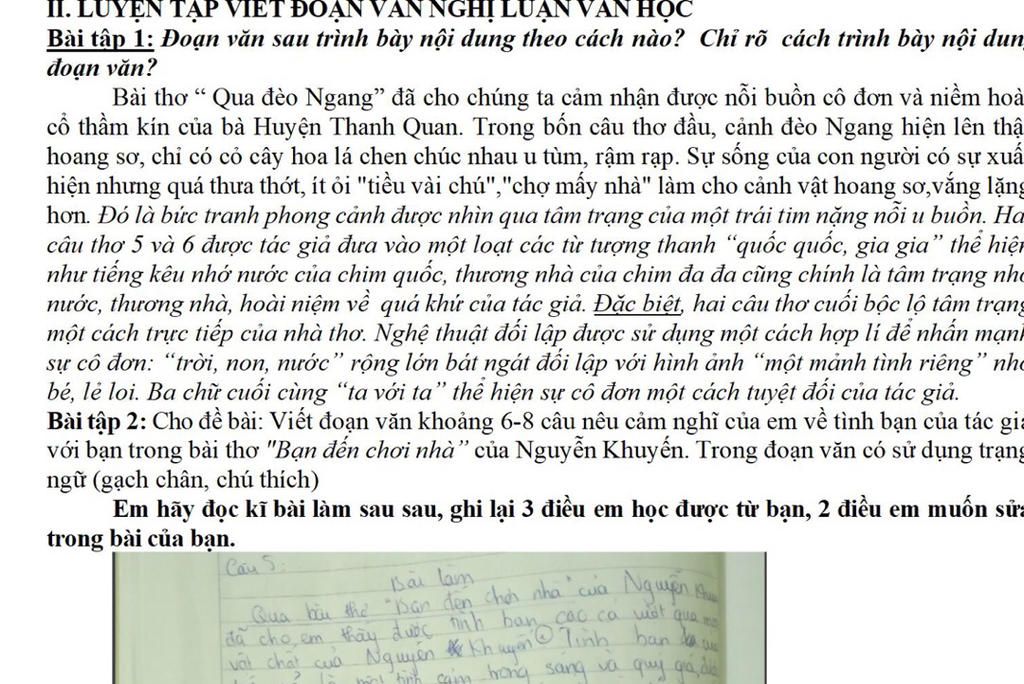 II. LUYỆN TẬP VIẾT ĐOẠN VĂN NGHỊ LUẬN VĂN HỌC
Bài tập 1: Đoạn văn sau trình bày nội dung theo cách nào? Chỉ rõ cách trình bày nội dun
đoạn văn?
Bài thơ “ Qua đèo Ngang” đã cho chúng ta cảm nhận được nỗi buồn cô đơn và niềm hoà
cổ thầm kín của bà Huyện Thanh Quan. Trong bốn câu thơ đầu, cảnh đèo Ngang hiện lên thậ
hoang sơ, chỉ có cỏ cây hoa lá chen chúc nhau u tùm, rậm rạp. Sự sống của con người có sự xuấ
hiện nhưng quá thưa thớt, ít ỏi "tiều vài chú","chợ mấy nhà" làm cho cảnh vật hoang sơ,vắng lặng
hơn. Đó là bức tranh phong cảnh được nhìn qua tâm trạng của một trái tim nặng nỗi u buồn. Ha
câu thơ 5 và 6 được tác giả đưa vào một loạt các từ tượng thanh “quốc quốc, gia gia” thể hiện
như tiếng kêu nhớ nước của chim quốc, thương nhà của chim đa đa cũng chính là tâm trạng nhớ
nước, thương nhà, hoài niệm về quá khứ của tác giả. Đặc biệt, hai câu thơ cuối bộc lộ tâm trạng
một cách trực tiếp của nhà thơ. Nghệ thuật đối lập được sử dụng một cách hợp lí để nhấn mạnh
sự cô đơn: “trời, non, nước” rộng lớn bát ngát đối lập với hình ảnh “một mảnh tình riêng” nhỏ
bé, lẻ loi. Ba chữ cuối cùng “ta với ta” thể hiện sự cô đơn một cách tuyệt đối của tác giả.
Bài tập 2: Cho đề bài: Viết đoạn văn khoảng 6-8 câu nêu cảm nghĩ của em về tình bạn của tác giả
với bạn trong bài thơ "Bạn đến chơi nhà” của Nguyễn Khuyến. Trong đoạn văn có sử dụng trạng
ngữ (gạch chân, chú thích)
Em hãy đọc kĩ bài làm sau sau, ghi lại 3 điều em học được từ bạn, 2 điều em muốn sửa
trong bài của bạn.
Câu 5:
Bài làm
Qua bài thơ "Bạn đến chơi nhà" của Nguyễn
đã cho em thấy được tình bạn cao cả vượt qua
vật chất của Nguyễn Khuyến Tình bạn
là một tình cảm trong sáng và quý giá,